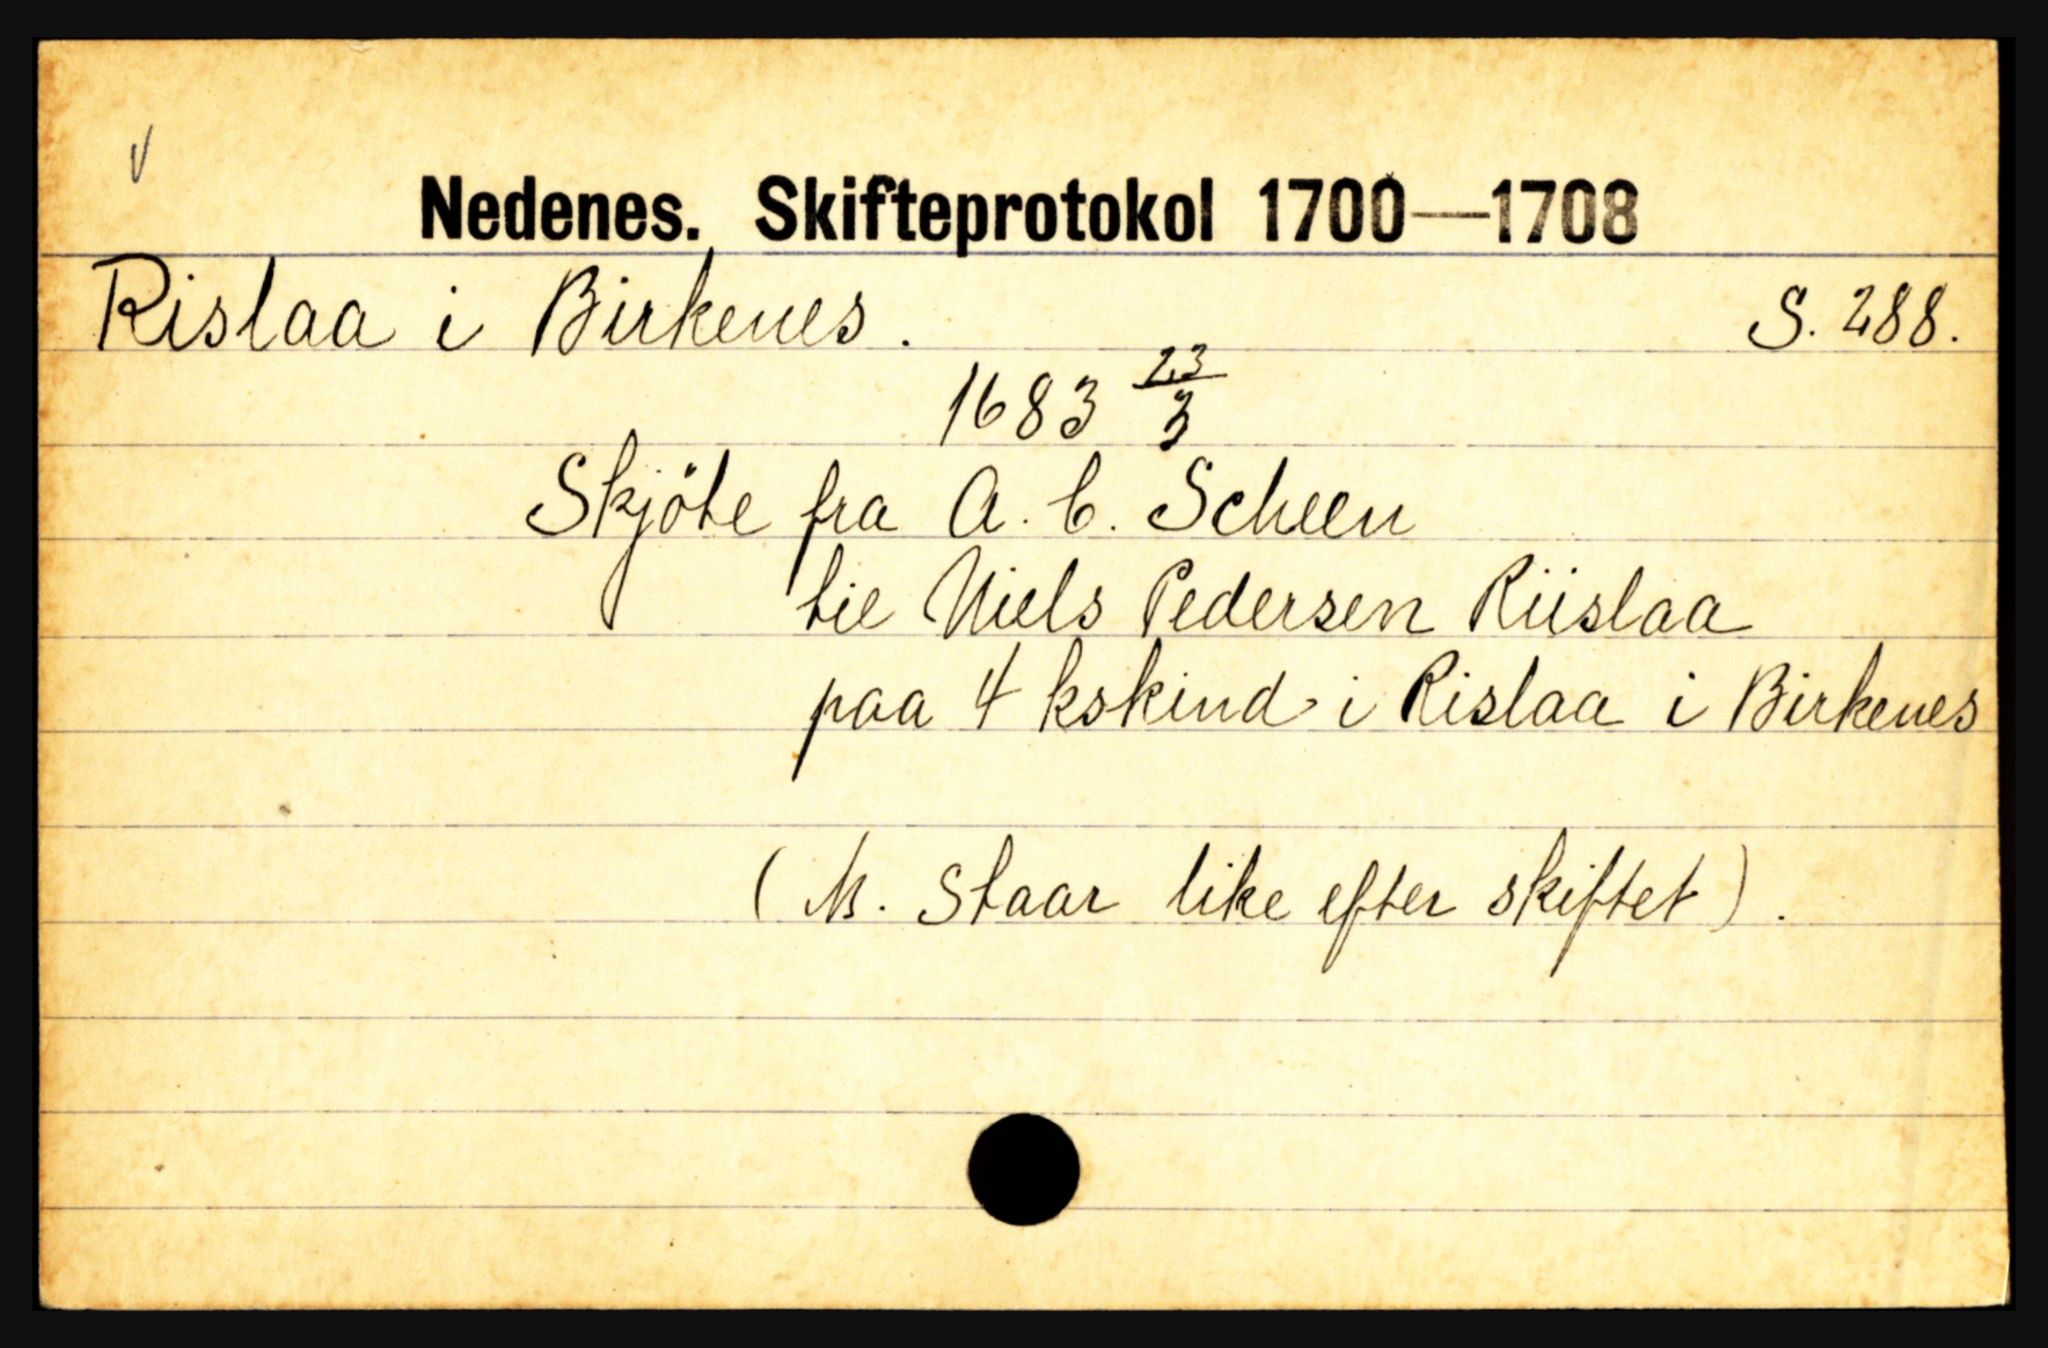 V
Nedenes. Skifteprotokol 1700—1708
Rislaa i Birkenes. S. 288.
1683 23/3
Skjöte fra A. C. Scheen
til Niels Pedersen Riislaa
paa 4 kskind i Rislaa i Birkenes
( M. Staar like efter skiftet ) .